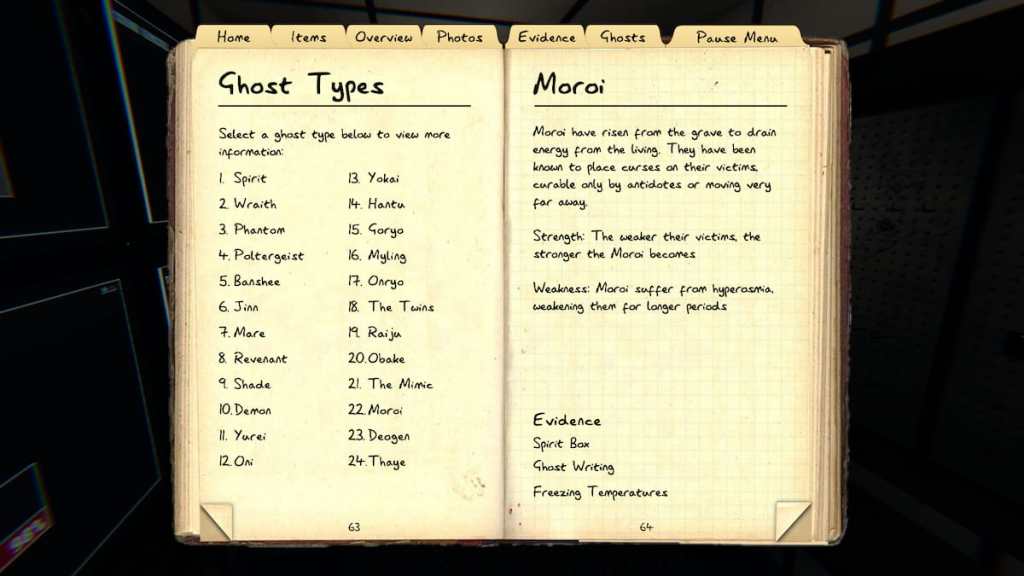 Home Items Overview Photos Evidence Ghosts Pause Menu
Ghost Types
Select a ghost type below to view more
information:
1. Spirit
2. Wraith
3. Phantom
4. Poltergeist
5. Banshee
6. Jinn
7. Mare
8. Revenant
9. Shade
10. Demon
11. Yurei
12. Oni
13. Yokai
14. Hantu
15. Goryo
16. Myling
17. Onryo
18. The Twins
19. Raiju
20. Obake
21. The Mimic
22. Moroi
23. Deogen
24. Thaye
63
Moroi
Moroi have risen from the grave to drain
energy from the living. They have been
known to place curses on their victims,
curable only by antidotes or moving very
far away.
Strength: The weaker their victims, the
stronger the Moroi becomes
Weakness: Moroi suffer from hyperosmia,
weakening them for longer periods
Evidence
Spirit Box
Ghost Writing
Freezing Temperatures
64